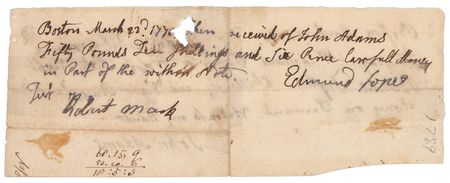 Boston March 22d. 177 then received of John Adams
Fifty Pounds Ten Shillings and Six Pence Lawfull Money
in Part of the within Note.
Edmund
Test Robert
68.15.9
50.10.6
18:5:3
1739
No